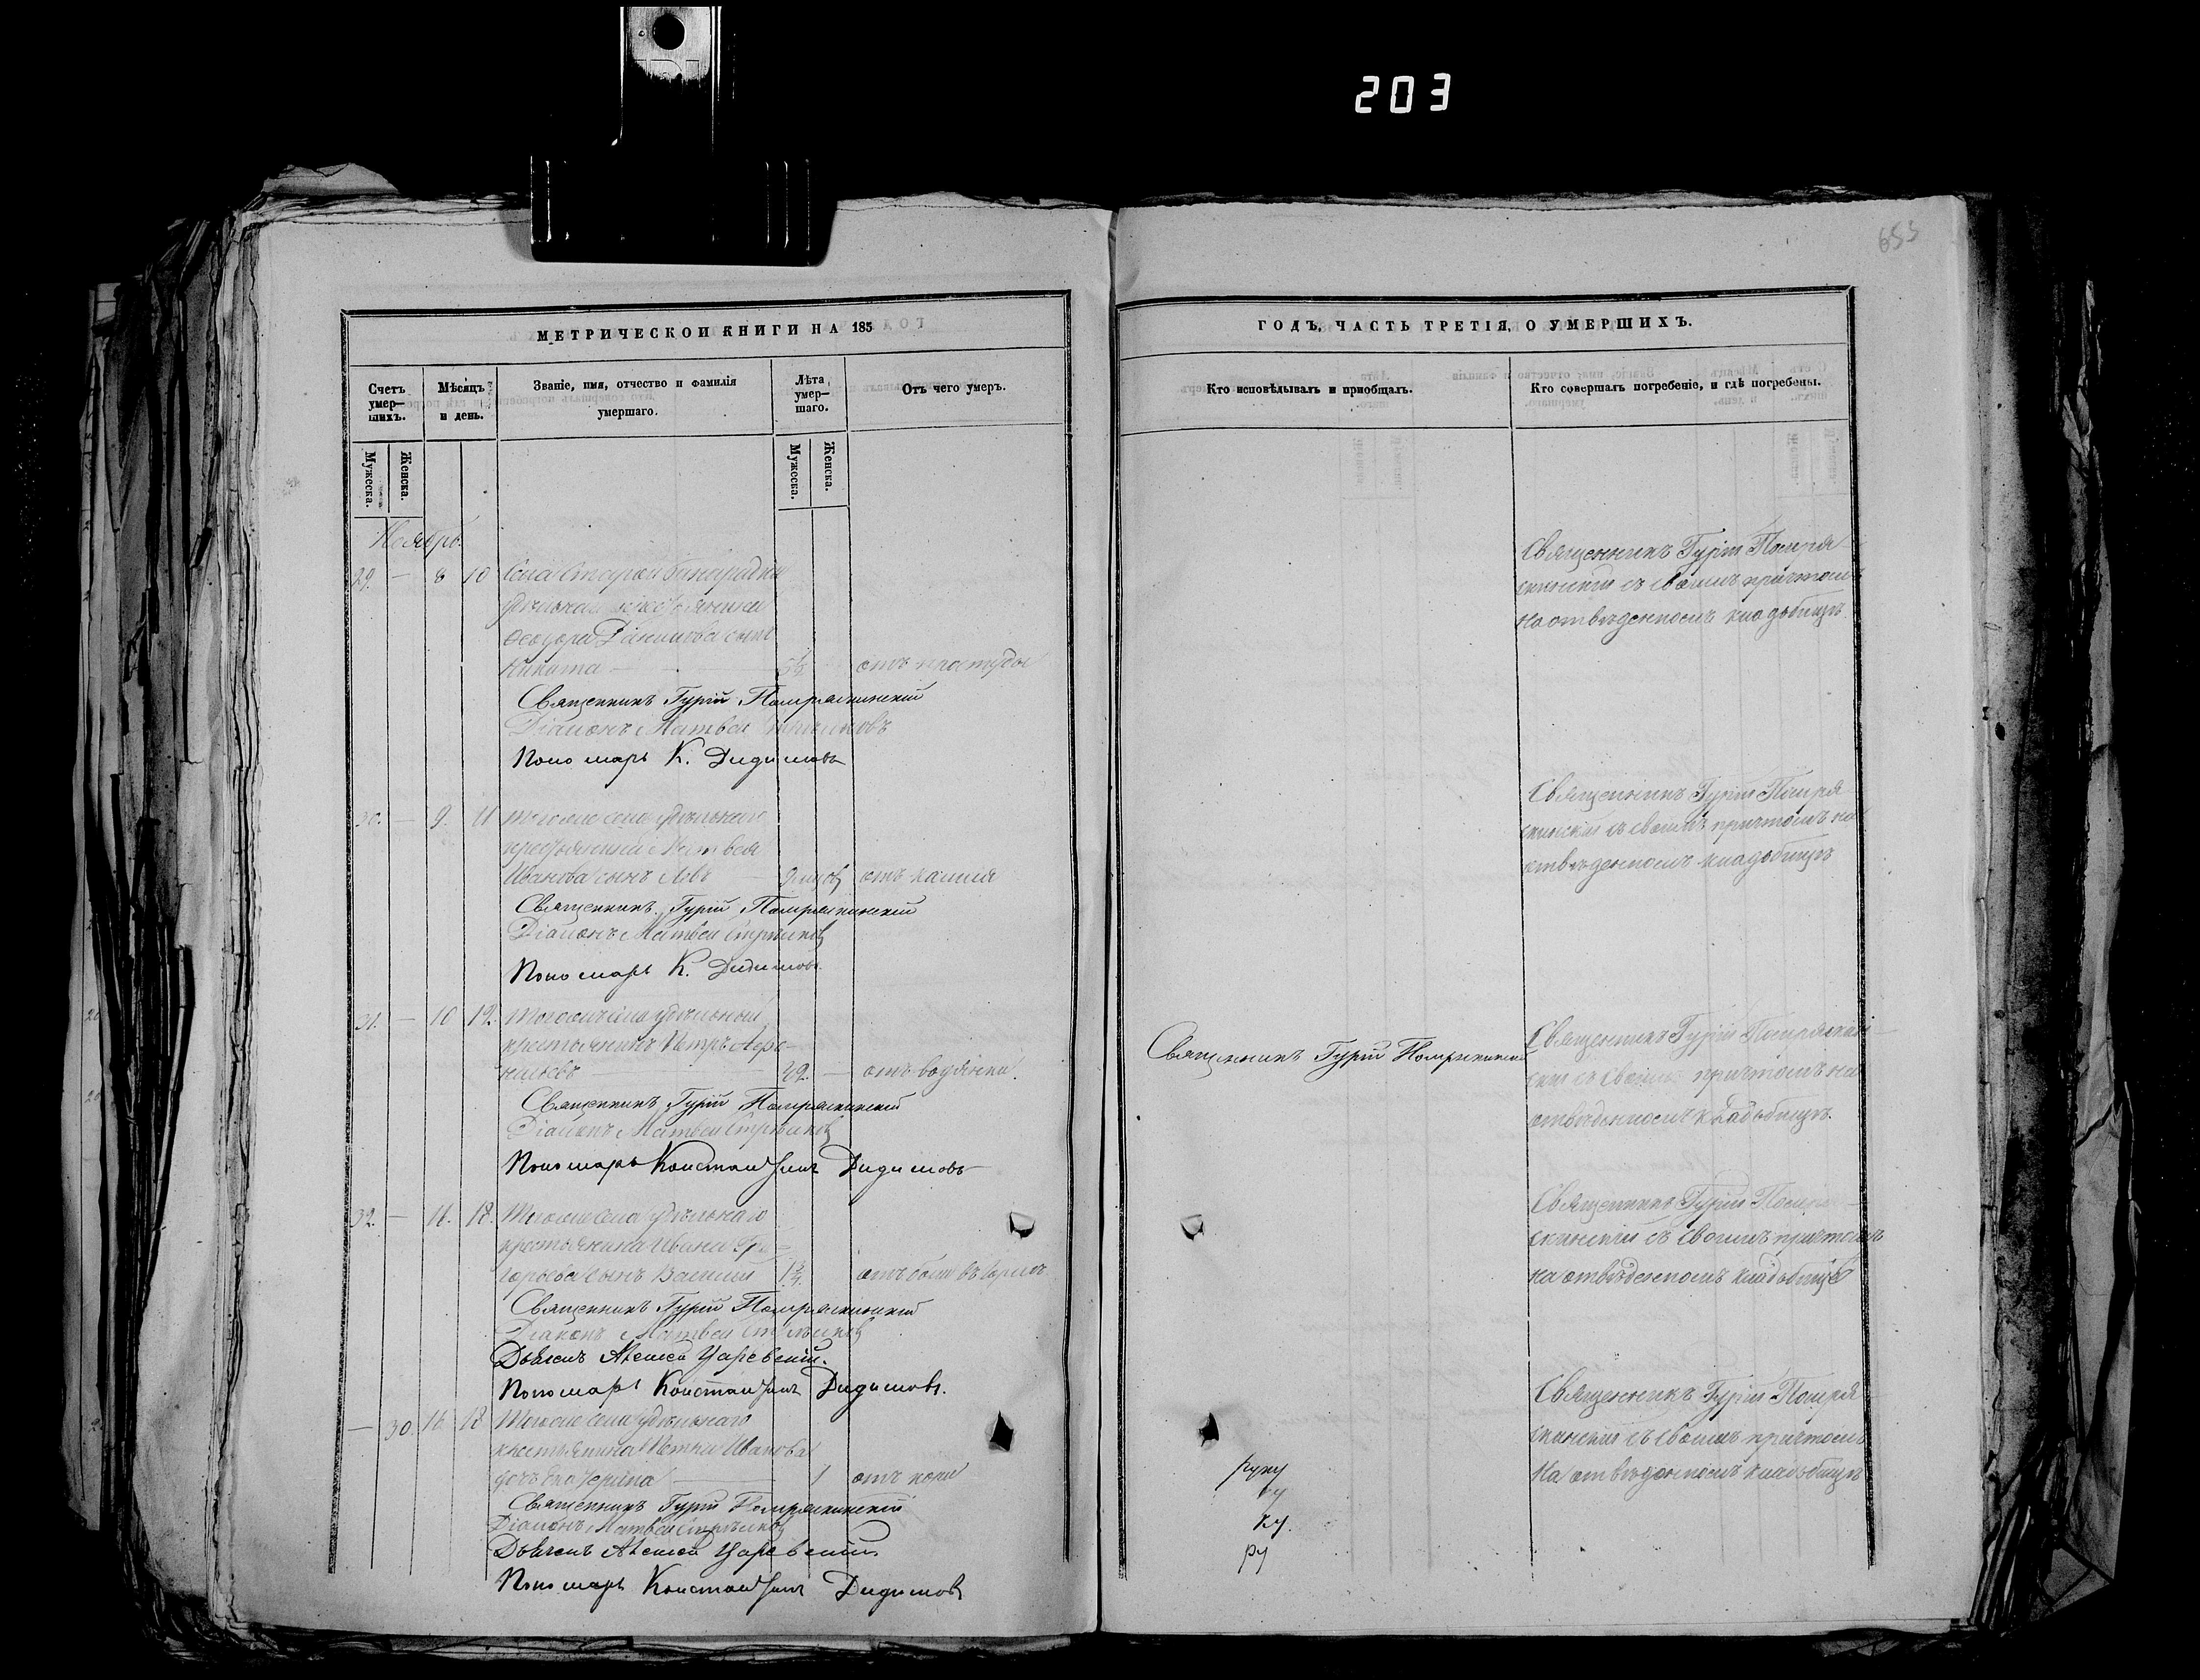 203
655
МЕТРИЧЕСКОЙ КНИГИ НА 185
Счетъ умер—шихъ.
Мѣсяцъ и день.
Званіе, имя, отчество и фамилія умершаго.
Лѣта умер—шаго.
Отъ чего умеръ.
Мужеска.
Женска.
Мужеска.
Женска.
Ноябрь.
29. — 8 10 Села Старой
удѣльнаго крестьянина
Ѳеодора Данилова сынъ
Никита — отъ простуды
Священникъ Гурій Помряскинскій
Діаконъ Матвей Стрѣлковъ
Пономарь К. Дидимовъ
30. — 9. 11 Тогоже села удѣльнаго
крестьянина Матвея
Иванова сынъ Левъ — отъ кашля
Священникъ Гурій Помряскинскій
Діаконъ Матвей Стрѣлковъ
Пономарь К. Дидимовъ
31. — 10 12. Тогоже села удѣльный
крестьянинъ Петръ
— отъ водянки.
Священникъ Гурій Помряскинскій
Діаконъ Матвей Стрѣлковъ
Пономарь Константинъ Дидимовъ
32. — 18. Тогоже села удѣльнаго
крестьянина Ивана Гри
горьева сынъ Василій 1¾. отъ боли въ горлѣ
Священникъ Гурій Помряскинскій
Діаконъ Матвей Стрѣлковъ
Дьячекъ Алексей Царевскій.
Пономарь Константинъ Дидимовъ.
— 30. 16 18 Тогоже села удѣльнаго
крестьянина Петра Иванова
дочь Екатерина — 1 отъ кори
Священникъ Гурій Помряскинскій
Діаконъ Матвей Стрѣлковъ
Дьячекъ Алексей Царевскій.
Пономарь Константинъ Дидимовъ
ГОДЪ, ЧАСТЬ ТРЕТІЯ, О УМЕРШИХЪ.
Кто исповѣдывалъ и приобщалъ.
Кто совершалъ погребеніе, и гдѣ погребены.
Священникъ Гурій Помря
скинскій съ своимъ причтомъ
на отведенномъ кладбищѣ
Священникъ Гурій Помря
скинскій съ своимъ причтомъ на
отведенномъ кладбищѣ
Священникъ Гурій Помряскинскій
Священникъ Гурій Помряскин
скій съ своимъ причтомъ на
отведенномъ кладбищѣ.
Священникъ Гурій Помря
скинскій съ своимъ причтомъ
на отведенномъ кладбищѣ
Священникъ Гурій Помря
скинскій съ своимъ причтомъ
на отведенномъ кладбищѣ
руку
ку.
ру